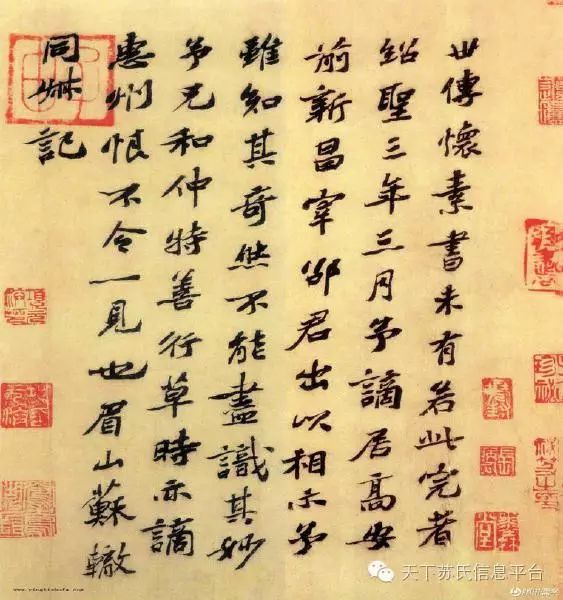 世傳懷素書未有若此完者
紹聖三年三月予謫居高安
前新昌宰邵君出以相示予
雖知其奇然不能盡識其妙
予兄和仲特善行草時亦謫
惠州恨不令一見也眉山蘇轍
同叔記
天下苏氏信息平台
www.yingbishufa.com